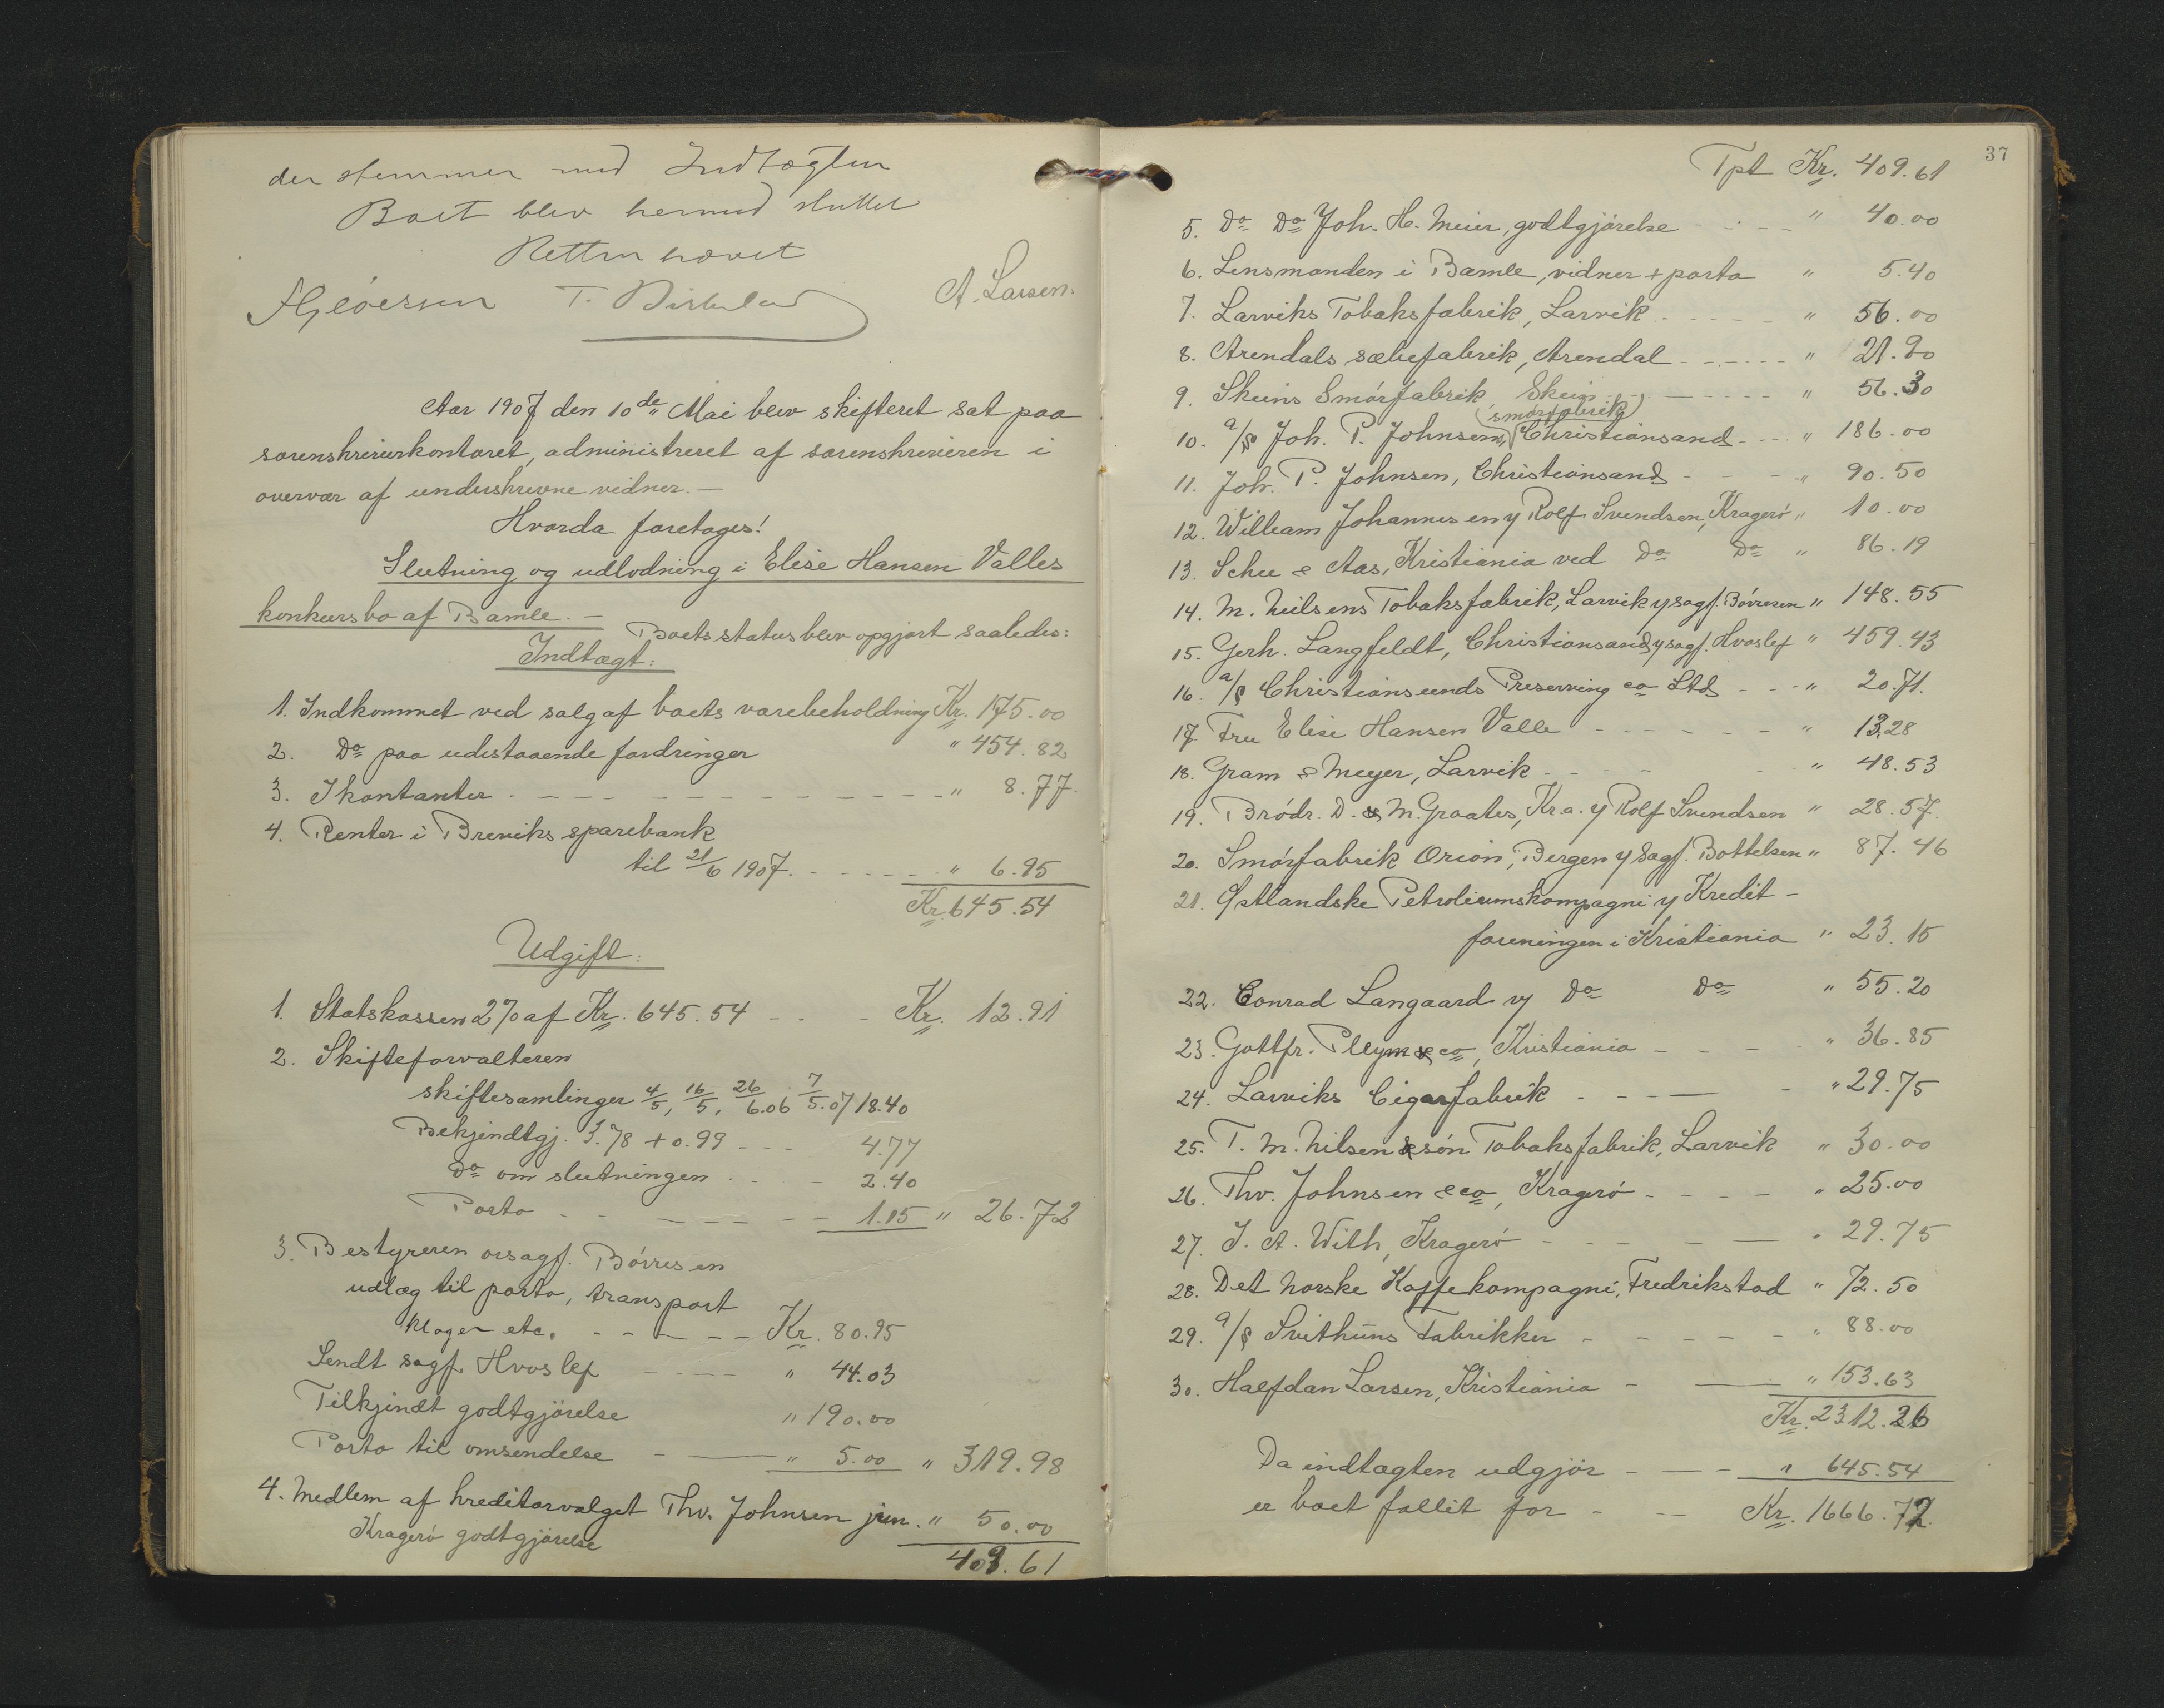 der stemmer med Indtægten
Boet blev hermed sluttet
Retten hævet
T. A. Larsen.
Aar 1907 den 10de Mai blev skifteret sat paa
sorenskriverkontoret, administreret af sorenskriveren i
overvær af underskrevne vidner. —
Hvorda foretoges!
Slutning og udlodning i Elise Hansen Valles
konkursbo af Bamle. —
Boets status blev opgjort saaledes:
Indtægt:
1. Indkommet ved salg af boets varebeholdning Kr. 175.00
2. Do paa udestaaende fordringer " 454.82
3. I kontanter " 8.77.
4. Renter i Breviks sparebank
til 21/6 1907. " 6.95
Kr. 645.54
Udgift:
1. Statskassen 2% af Kr. 645.54 Kr. 12.91
2. Skifteforvalteren
skiftesamlinger 4/5, 16/5, 26/6.06 7/5.07 18.40
Bekjendtgj. 3.78 + 0.99 4.77
Do om slutningen 2.40
Porto 1.15 " 26.72
3. Bestyreren orsagf. Børresen
udlæg til porto, transport
klager etc. Kr. 80.95
Sendt sagf. Hvoslef " 44.03
Tilkjendt godtgjørelse " 190.00
Porto til omsendelse " 5.00 " 319.98
4. Medlem af kreditorvalget Thv. Johnsen jun. " 50.00
Kragerø godtgjørelse
409.61
37
Tpt Kr. 409.61
5. Do Do Joh. H. Meier, godtgjørelse " 40.00
6. Lensmanden i Bamle, vidner + porto " 5.40
7. Larviks Tobaksfabrik, Larvik " 56.00
8. Arendals sæbefabrik, Arendal " 21.90
9. Skiens Smørfabrik, Skien " 56.30
10. a/s Joh. P. Johnsens (smørfabrik) Christiansand " 186.00
11. Joh. P. Johnsen, Christiansand " 90.50
12. William Johannesen y Rolf Svendsen, Kragerø " 10.00
13. Schee & Aas, Kristiania ved Do Do " 86.19
14. M. Nielsens Tobaksfabrik, Larvik y sagf. Børresen " 148.55
15. Gerh. Langfeldt, Christiansand y sagf. Hvoslef " 459.43
16. a/s Christianssunds Preserving co Ltd " 20.71.
17. Fru Elise Hansen Valle " 13.28
18. Gram & Meyer, Larvik " 48.53
19. Brødr. D. & M. Graater, Kr.a. y Rolf Svendsen " 28.57.
20. Smørfabrik Orion, Bergen y Sagf. Bottelsen " 87.46
21. Østlandske Petroliumskompagni y Kredit-
foreningen i Kristiania " 23.15
22. Conrad Langaard y Do Do " 55.20
23. Gottfr. Pleym & co, Kristiania " 36.85
24. Larviks Cigarfabrik " 29.75
25. T. M. Nilsen & søn Tobaksfabrik, Larvik " 30.00
26. Thv. Johnsen & co, Kragerø " 25.00
27. J. A. With, Kragerø " 29.75
28. Det norske Kaffekompagni, Fredrikstad " 72.50
29. a/s Svithuns Fabrikker " 88.00
30. Halfdan Larsen, Kristiania " 153.63
Kr. 2312.26
Da indtægten udgjør " 645.54
er boet fallit for Kr. 1666.72.